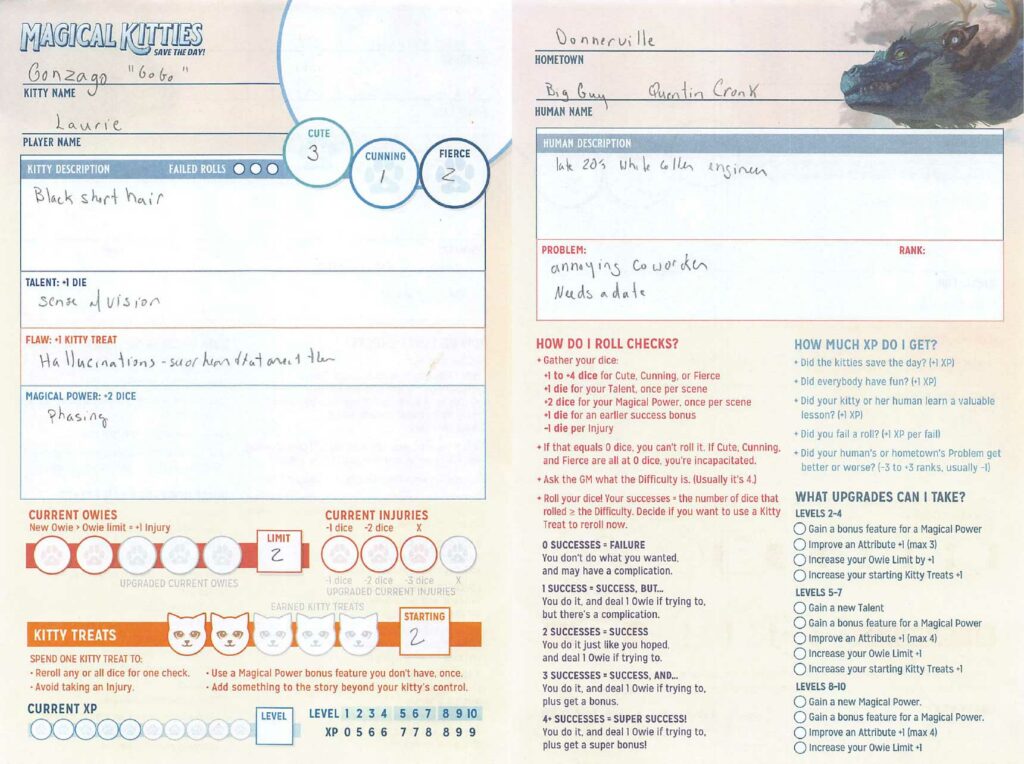 MAGICAL KITTIES
SAVE THE DAY!
Gonzago "GoGo"
KITTY NAME
Laurie
PLAYER NAME
CUTE
3
CUNNING
1
FIERCE
2
KITTY DESCRIPTION FAILED ROLLS
Black short hair
TALENT: +1 DIE
Sense of Vision
FLAW: +1 KITTY TREAT
Hallucinations - see or hear
MAGICAL POWER: +2 DICE
Phasing
CURRENT OWIES
New Owie > Owie limit = +1 Injury
LIMIT
2
UPGRADED CURRENT OWIES
CURRENT INJURIES
-1 dice -2 dice X
-1 dice -2 dice -3 dice X
UPGRADED CURRENT INJURIES
EARNED KITTY TREATS
KITTY TREATS
STARTING
2
SPEND ONE KITTY TREAT TO:
• Reroll any or all dice for one check.
• Avoid taking an Injury.
• Use a Magical Power bonus feature you don't have, once.
• Add something to the story beyond your kitty's control.
CURRENT XP
LEVEL
LEVEL 1 2 3 4 5 6 7 8 9 10
XP 0 5 6 6 7 7 8 8 9 9
Donnerville
HOMETOWN
Big Guy Quentin Cronk
HUMAN NAME
HUMAN DESCRIPTION
late 20s white coller engineer
PROBLEM: RANK:
annoying coworker
Needs a date
HOW DO I ROLL CHECKS?
+ Gather your dice:
+1 to +4 dice for Cute, Cunning, or Fierce
+1 die for your Talent, once per scene
+2 dice for your Magical Power, once per scene
+1 die for an earlier success bonus
-1 die per Injury
+ If that equals 0 dice, you can't roll it. If Cute, Cunning,
and Fierce are all at 0 dice, you're incapacitated.
+ Ask the GM what the Difficulty is. (Usually it's 4.)
+ Roll your dice! Your successes = the number of dice that
rolled ≥ the Difficulty. Decide if you want to use a Kitty
Treat to reroll now.
0 SUCCESSES = FAILURE
You don't do what you wanted,
and may have a complication.
1 SUCCESS = SUCCESS, BUT...
You do it, and deal 1 Owie if trying to,
but there's a complication.
2 SUCCESSES = SUCCESS
You do it just like you hoped,
and deal 1 Owie if trying to.
3 SUCCESSES = SUCCESS, AND...
You do it, and deal 1 Owie if trying to,
plus get a bonus.
4+ SUCCESSES = SUPER SUCCESS!
You do it, and deal 1 Owie if trying to,
plus get a super bonus!
HOW MUCH XP DO I GET?
+ Did the kitties save the day? (+1 XP)
+ Did everybody have fun? (+1 XP)
+ Did your kitty or her human learn a valuable
lesson? (+1 XP)
+ Did you fail a roll? (+1 XP per fail)
+ Did your human's or hometown's Problem get
better or worse? (-3 to +3 ranks, usually -1)
WHAT UPGRADES CAN I TAKE?
LEVELS 2-4
Gain a bonus feature for a Magical Power
Improve an Attribute +1 (max 3)
Increase your Owie Limit by +1
Increase your starting Kitty Treats +1
LEVELS 5-7
Gain a new Talent
Gain a bonus feature for a Magical Power
Improve an Attribute +1 (max 4)
Increase your Owie Limit +1
Increase your starting Kitty Treats +1
LEVELS 8-10
Gain a new Magical Power.
Gain a bonus feature for a Magical Power.
Improve an Attribute +1 (max 4)
Increase your Owie Limit +1